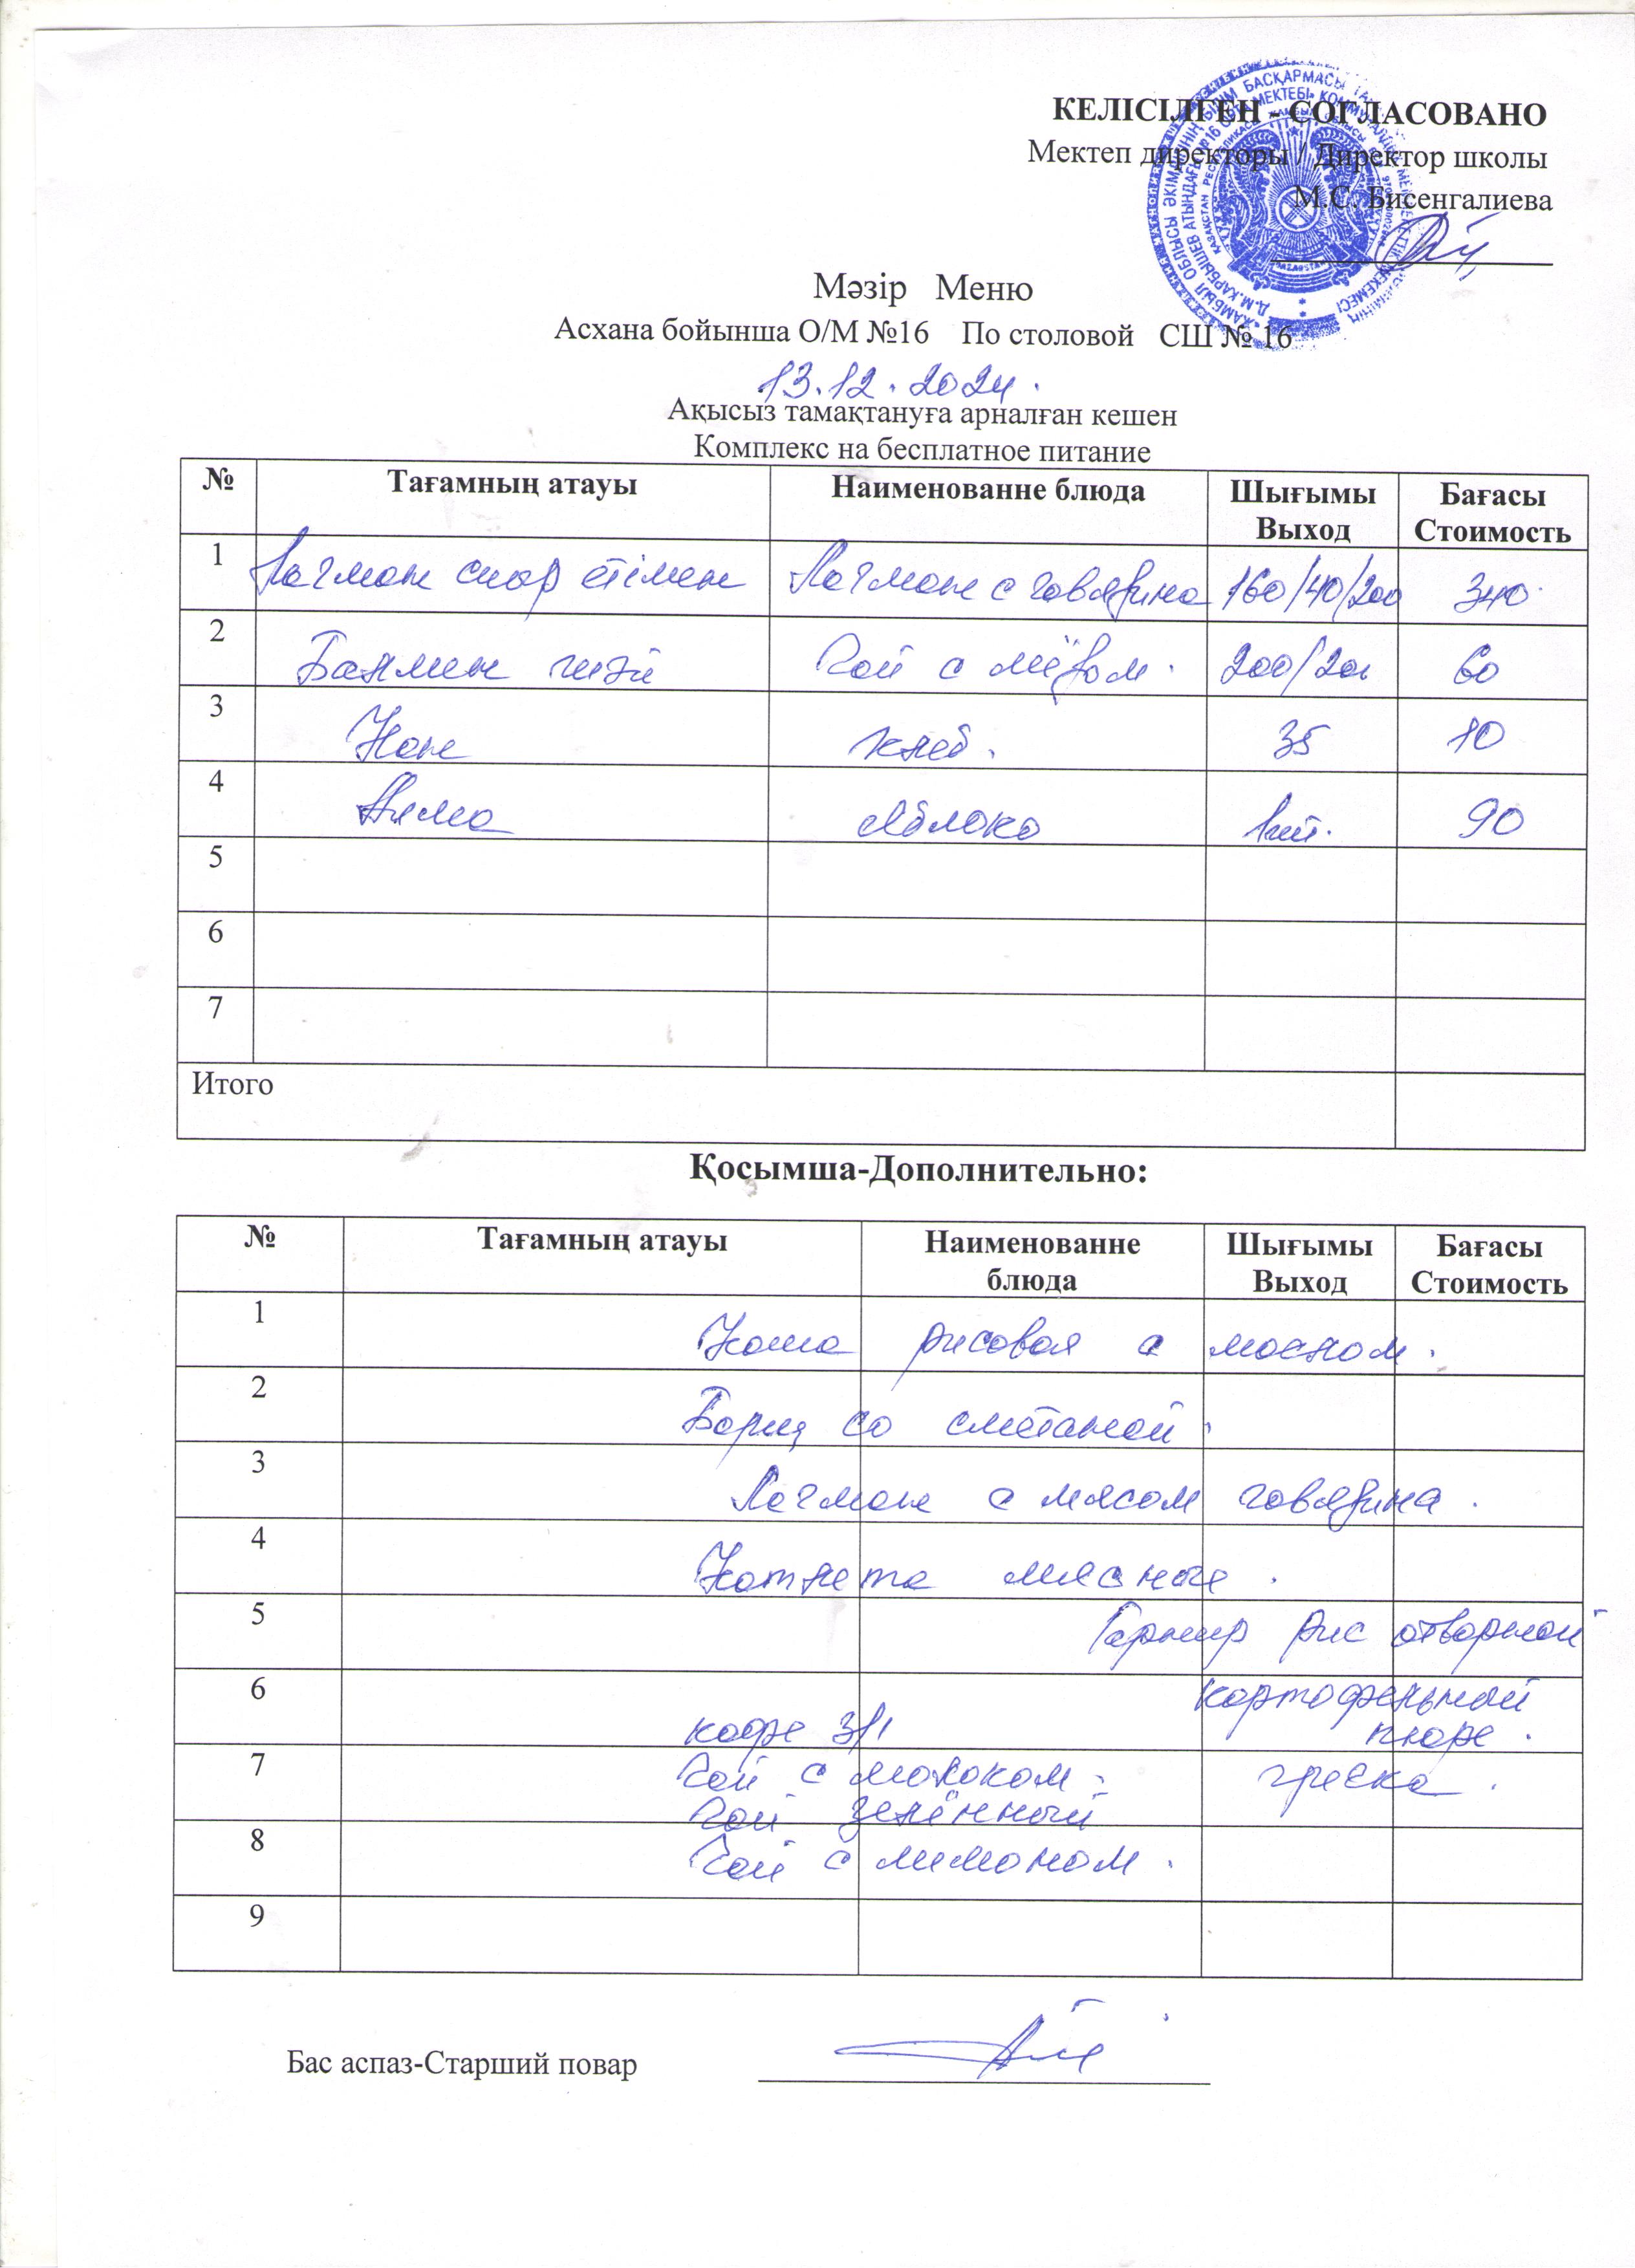 КЕЛІСІЛГЕН - СОГЛАСОВАНО
Мектеп директоры / Директор школы
М.С. Бисенгалиева
Мәзір Меню
Асхана бойынша О/М №16 По столовой СШ № 16
13.12.2024.
Ақысыз тамақтануға арналған кешен
Комплекс на бесплатное питание
№ Тағамның атауы Наименованне блюда Шығымы Выход Бағасы Стоимость
1 Лагман сиыр етімен Лагман с говядина 160/40/200 340
2 Балмен шәй Чай с мёдом. 200/20 60
3 Нан хлеб. 35 10
4 Алма Яблоко 1шт. 90
5
6
7
Итого
Қосымша-Дополнительно:
№ Тағамның атауы Наименованне блюда Шығымы Выход Бағасы Стоимость
1 Каша рисовая с маслом.
2 Борщ со сметаной.
3 Лагман с мясом говядина.
4 Котлета мясные.
5 Гарнир рис отварной
6 картофельный
кофе 3/1 пюре.
7 Чай с молоком. греска.
Чай зелённый
8 Чай с лимоном.
9
Бас аспаз-Старший повар